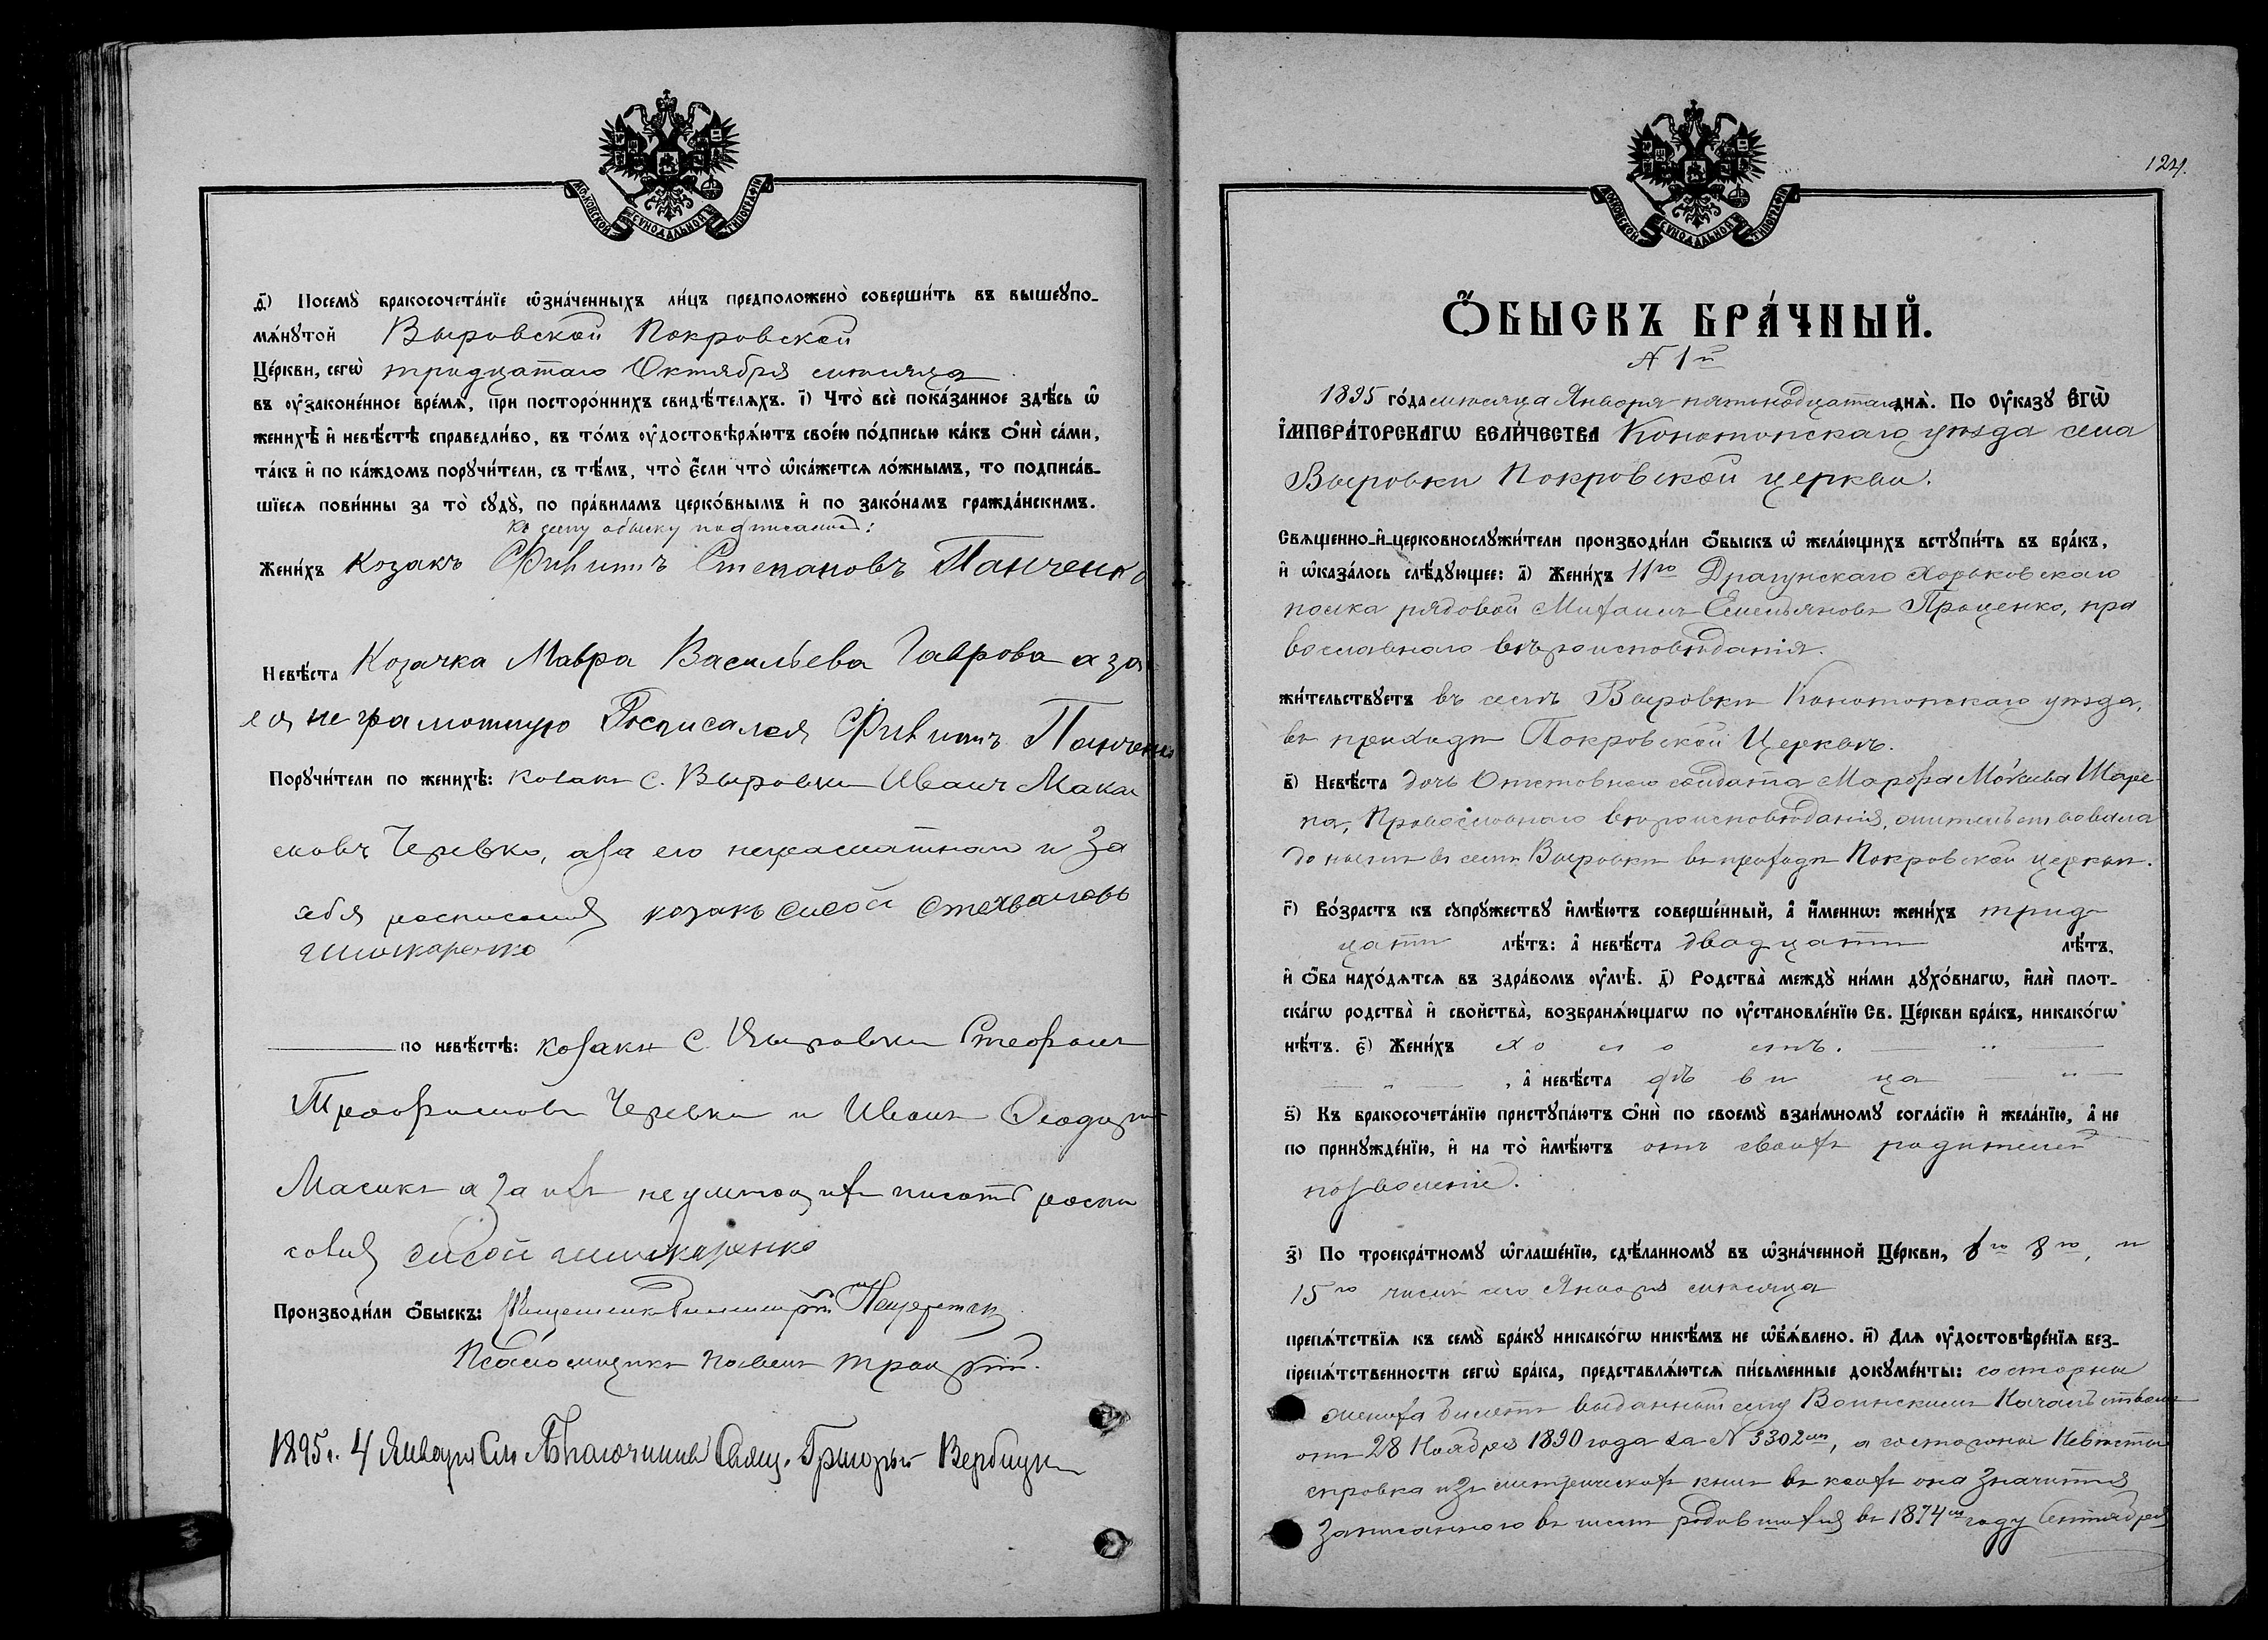 МОСКОВСКОЙ СѴНОДАЛЬНОЙ ТИПОГРАФІИ
д҃) Посемꙋ̀ бракосочета́нїе ѡ҆зна́ченныхъ ли́цъ предположено̀ соверши́ть въ вышеꙋпо-
мѧ́нꙋтой Выровской Покровской
Це́ркви, сегѡ̀ тридцатаго Октября мѣсяца
въ оу҆законе́нное вре́мѧ, при посторо́ннихъ свидѣ́телѧхъ. і҃) Что̀ всѐ пока́занное здѣ́сь ѡ҆
женихѣ̀ и҆ невѣ́стѣ справедли́во, въ то́мъ оу҆достовѣрѧ́ютъ свое́ю по́дписью ка́къ ѻ҆нѝ са́ми,
та́къ и҆ по ка́ждомъ порꙋчи́тели, съ тѣ́мъ, что̀ є҆́сли что̀ ѡ҆ка́жетсѧ ло́жнымъ, то подписа́в-
шїесѧ пови́нны за то̀ сꙋдꙋ̀, по пра́виламъ церко́внымъ и҆ по зако́намъ гражда́нскимъ.
Къ сему обыску подписались:
Жени́хъ Козакъ Степановъ Панченко
Невѣ́ста Козачка Мавра Васильева Гаврова а за
ея неграмотную Росписался Панченко
Порꙋчи́тели по женихѣ̀: козакъ с. Выровки Иванъ Мака
Черевко, а за его неграматнаго и за
себя росписался козакъ Сисой
по невѣ́стѣ: козаки с. Выровки Стефанъ
Трофимовъ Черевко и Иванъ
Масикъ а за ихъ неумѣющихъ писать роспи
сався Сисой
Производи́ли ѻ҆́быскъ: Священникъ
Псаломщикъ Павелъ
1895 г. 4 Января См. Благочинный Свящ. Григорій Вербицкій
124.
МОСКОВСКОЙ СѴНОДАЛЬНОЙ ТИПОГРАФІИ
Ѻ҆́БЫСКЪ БРА́ЧНЫЙ.
№ 1й
1895 го́да мѣсяца Января пятнадцатаго днѧ̀. По Оу҆ка́зꙋ Є҆ГѠ̀
І҆МПЕРА́ТОРСКАГѠ ВЕЛИ́ЧЕСТВА Конотопскаго уѣзда села
Выровки Покровской церкви.
Свѧще́нно-и҆-церковнослꙋжи́тели производи́ли ѻ҆́быскъ ѡ҆ жела́ющихъ встꙋпи́ть въ бра́къ,
и҆ ѡ҆каза́лось слѣ́дꙋющее: а҃) Жени́хъ 11го Драгунскаго Харьковскаго
полка рядовой Михаилъ Емельяновъ Проценко, пра
вославнаго вѣроисповѣданія.
жи́тельствꙋетъ въ селѣ Выровки Конотопскаго уѣзда,
въ приходѣ Покровской Церкви.
в҃) Невѣ́ста дочь Отставного солдата Марфа Шаре
ка, Православнаго вѣроисповѣданія, жительствовала
до нынѣ въ селѣ Выровки въ приходѣ Покровской церкви.
г҃) Во́зрастъ къ сꙋпрꙋ́жествꙋ и҆мѣ́ютъ соверше́нный, а҆ и҆́менно: жени́хъ трид
цати лѣ́тъ: а҆ невѣ́ста двадцати лѣ́тъ,
и҆ ѻ҆́ба нахо́дѧтсѧ въ здра́вомъ оу҆мѣ̀. д҃) Родства̀ междꙋ̀ ни́ми дꙋхо́внагѡ, и҆лѝ плот-
ска́гѡ родства̀ и҆ свойства̀, возбранѧ́ющагѡ по оу҆становле́нїю Св. Це́ркви бра́къ, никако́гѡ
нѣ́тъ. є҃) Жени́хъ холостъ.
, а҆ невѣ́ста дѣвица
ѕ҃) Къ бракосочета́нїю пристꙋпа́ютъ ѻ҆нѝ по своемꙋ̀ взаи́мномꙋ согла́сїю и҆ жела́нїю, а҆ не
по принꙋжде́нїю, и҆ на то̀ и҆мѣ́ютъ отъ своихъ родителей
позволеніе.
з҃) По троекра́тномꙋ ѡ҆глаше́нїю, сдѣ́ланномꙋ въ ѡ҆зна́ченной Це́ркви, 6го 8го, и
15го числъ сего Января мѣсяца
препѧ́тствїѧ къ семꙋ̀ бра́кꙋ никако́гѡ никѣ́мъ не ѡ҆б̾ѧ́влено. и҃) Длѧ оу҆достовѣре́нїѧ без-
препѧ́тственности сегѡ̀ бра́ка, представлѧ́ютсѧ пи́сьменные докꙋме́нты: со стороны
жениха билетъ выданный ему Воинскимъ Начальникомъ
отъ 28 Ноября 1890 года за № 3302мъ, а со стороны Невѣсты
справка изъ метрическихъ книгъ въ коихъ она значится
записанною въ числѣ родившихся въ 1874мъ году Сентября